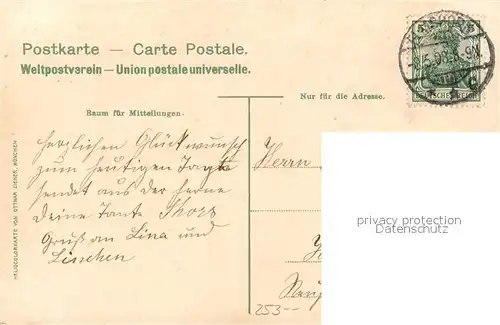 Postkarte — Carte Postale.
Weltpostverein — Union postale universelle.
Nur für die Adresse.
Raum für Mitteilungen.
herzlichen Glückwunsch
zum heutigen Tage
sendet aus der ferne
Deine Tante
Gruß an Lina und
Linchen
Herrn
privacy protection
Datenschutz
253--
DEUTSCHES REICH
HELIOCOLORKARTE VON OTTMAR ZIEHER, MÜNCHEN